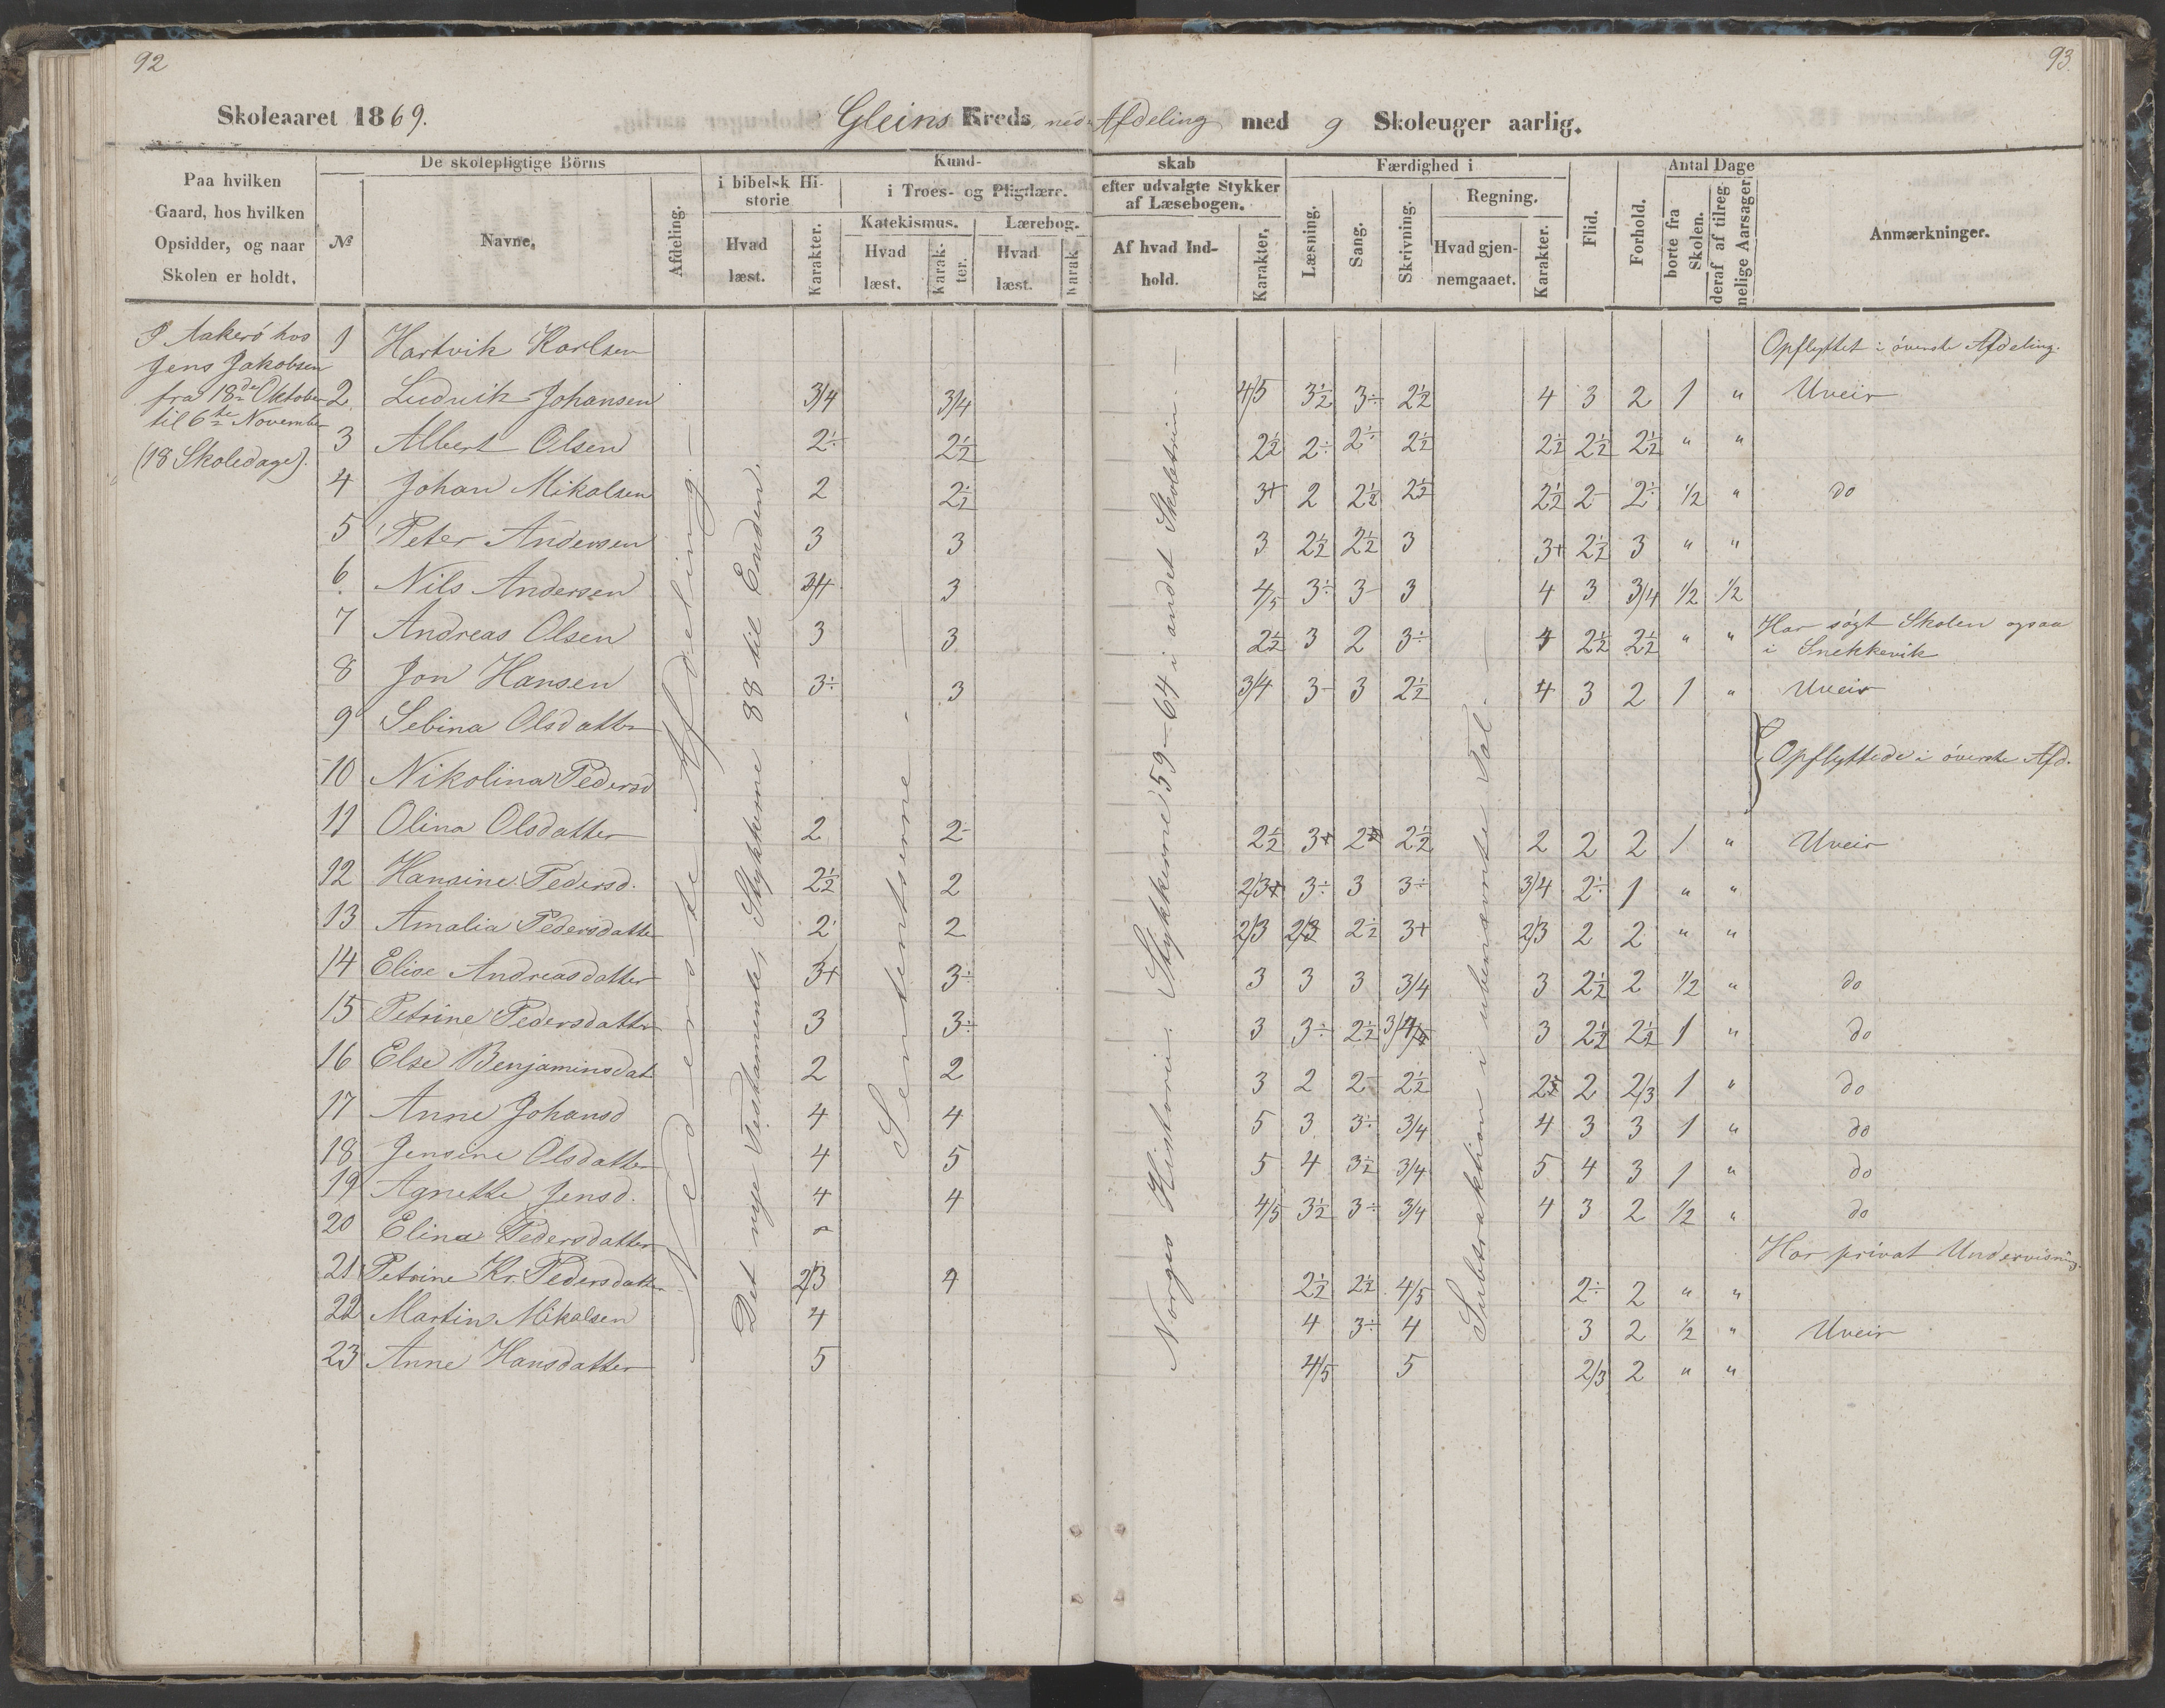 92
93
Skoleaaret 1869. Gleins Kreds ned. Afdeling med 9 Skoleuger aarlig.
Paa hvilken
Gaard, hos hvilken
Opsidder, og naar
Skolen er holdt.
De skolepligtige Börns
№
Navne.
Afdeling.
Kund-
skab
i bibelsk Hi-
storie
Hvad
læst.
Karakter.
i Troes- og Pligtlære.
Katekismus.
Hvad
læst.
Karak-
ter.
Lærebog.
Hvad
læst.
Karak
efter udvalgte Stykker
af Læsebogen.
Af hvad Ind-
hold.
Karakter.
Færdighed i
Læsning.
Sang.
Skrivning.
Regning.
Hvad gjen-
nemgaaet.
Karakter.
Flid.
Forhold.
Antal Dage
borte fra
Skolen.
deraf af tilreg-
nelige Aarsager
Anmærkninger.
I Aakerö hos
Jens Jakobsen
fra 18de Oktober
til 6te November
(18 Skoledage).
Nederste Afdeling.—
Det nye Testamente, Stykkerne 88 til Enden.
Sententserne.
Norges Historie. Stykkerne 59–64 i andet Skoletrin.—
Subtraktion i ubenævnte Tal.—
1 Hartvik Karlsen Opflyttet i överste Afdeling.
2 Ludvik Johansen 3/4 3/4 4/5 3½ 3÷ 2½ 4 3 2 1 " Uveir
3 Albert Olsen 2÷ 2½ 2½ 2÷ 2÷ 2½ 2½ 2½ 2½ " "
4 Johan Mikalsen 2 2½ 3+ 2 2½ 2½ 2½ 2- 2÷ ½ " do
5 Peter Andersen 3 3 3 2½ 2½ 3 3+ 2½ 3 " "
6 Nils Andersen 3/4 3 4/5 3÷ 3- 3 4 3 3/4 ½ ½
7 Andreas Olsen 3 3 2½ 3 2 3÷ 4 2½ 2½ " " Har sögt Skolen ogsaa
i Snekkevik
8 Jon Hansen 3÷ 3 3/4 3- 3 2½ 4 3 2 1 " Uveir
9 Sebina Olsdatter
10 Nikolina Pedersd Opflyttede i överste Afd.
11 Olina Olsdatter 2 2- 2½ 3+ 2 2½ 2 2 2 1 " Uveir
12 Hansine Pedersd. 2½ 2 2/3+ 3÷ 3 3÷ 3/4 2÷ 1 " "
13 Amalia Pedersdatter 2 2 2/3 2/3 2½ 3+ 2/3 2 2 " "
14 Elise Andreasdatter 3+ 3÷ 3 3 3 3/4 3 2½ 2 ½ " do
15 Petrine Pedersdatter 3 3÷ 3 3÷ 2½ 3/4 3 2½ 2½ 1 " do
16 Else Benjaminsdat 2 2 3 2 2- 2½ 2 2 2/3 1 " do
17 Anne Johansd 4 4 5 3 3÷ 3/4 4 3 3 1 " do
18 Jensine Olsdatter 4 5 5 4 3½ 3/4 5 4 3 1 " do
19 Agnette Jensd. 4 4 4/5 3½ 3÷ 3/4 4 3 2 ½ " do
20 Elina Pedersdatter Har privat Undervisning.
21 Petrine Kr. Pedersdatter 2/3 4 2½ 2½ 4/5 2÷ 2 " "
22 Martin Mikalsen 4 4 3÷ 4 3 2 ½ " Uveir
23 Anne Hansdatter 5 4/5 5 2/3 2 " "